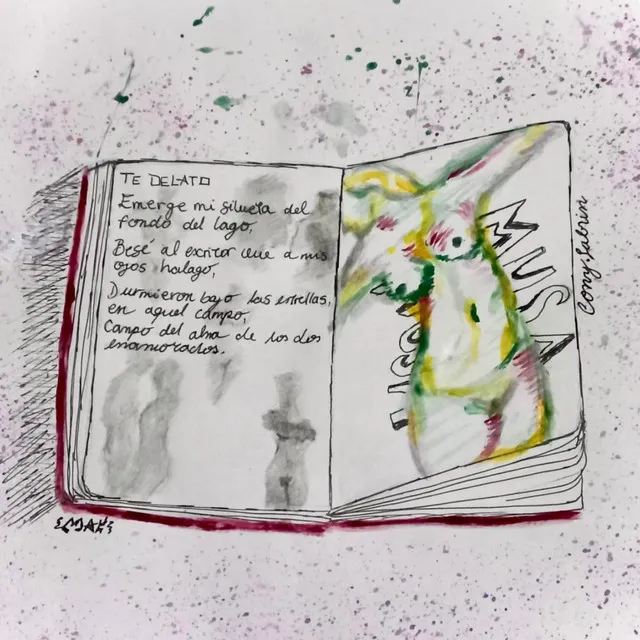 TE DELATO
Emerge mi silueta del
fondo del lago,
Besé al escritor que a mis
ojos halago,
Durmieron bajo las estrellas,
en aquel campo,
Campo del alma de los dos
enamorados.
MUSA
Comy, Sabrin